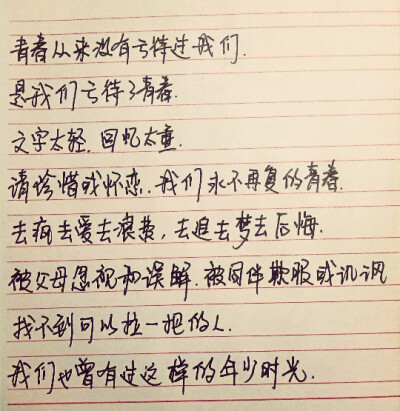 青春从来没有亏待过我们.
是我们亏待了青春.
文字太轻.回忆太重.
请珍惜或怀恋.我们永不再复的青春.
去疯去爱去浪费,去追去梦去后悔.
被父母忽视和误解.被同伴欺服或讥讽
找不到可以拉一把的人.
我们也曾有过这样的年少时光.